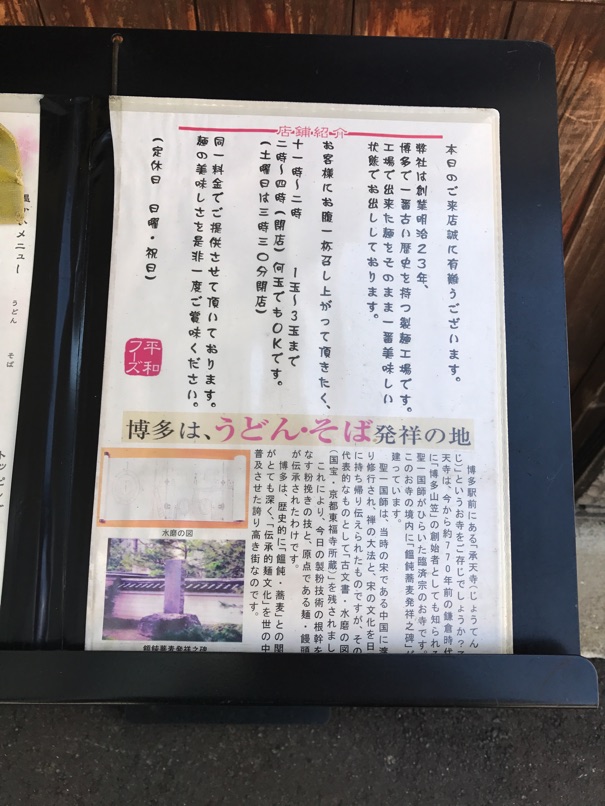 店・舗・紹・介
本日のご来店誠に有難うございます。
弊社は創業明治２３年、
博多で一番古い歴史を持つ製麺工場です。
工場で出来た麺をそのまま一番美味しい
状態でお出ししております。
お客様にお腹一杯召し上がって頂きたく、
十一時〜二時　１玉〜３玉まで
二時〜四時（閉店）何玉でもＯＫです。
（土曜日は三時三〇分閉店）
同一料金でご提供させて頂いております。
麺の美味しさを是非一度ご賞味ください。
（定休日　日曜・祝日）
平和
フーズ
博多は、うどん・そば発祥の地
博多駅前にある「承天寺」（じょうてん
じ）というお寺をご存じでしょうか？
天寺は、今から約７７０年前の鎌倉時代
に「博多山笠」の創始者としても知られる
聖一国師がひらいた臨済宗のお寺です。
このお寺の境内に「饂飩蕎麦発祥之碑」が
建っています。
聖一国師は、当時の宋である中国に渡
り修行され、禅の大法と、宋の文化を日
に持ち帰り伝えられたものですが、その
代表的なものとして「古文書・水磨の図
（国宝・京都東福寺所蔵）を残されまし
これにより、今日の製粉技術の根幹を
なす粉挽きの技と、原点である麺・饅頭
が伝承されたわけです。
博多は、歴史的に「饂飩・蕎麦」との関
がとても深く、「伝承的麺文化」を世の中
普及させた誇り高き街なのです。
水磨の図
饂飩蕎麦発祥之碑
いメニュー
うどん
そば
トッピン